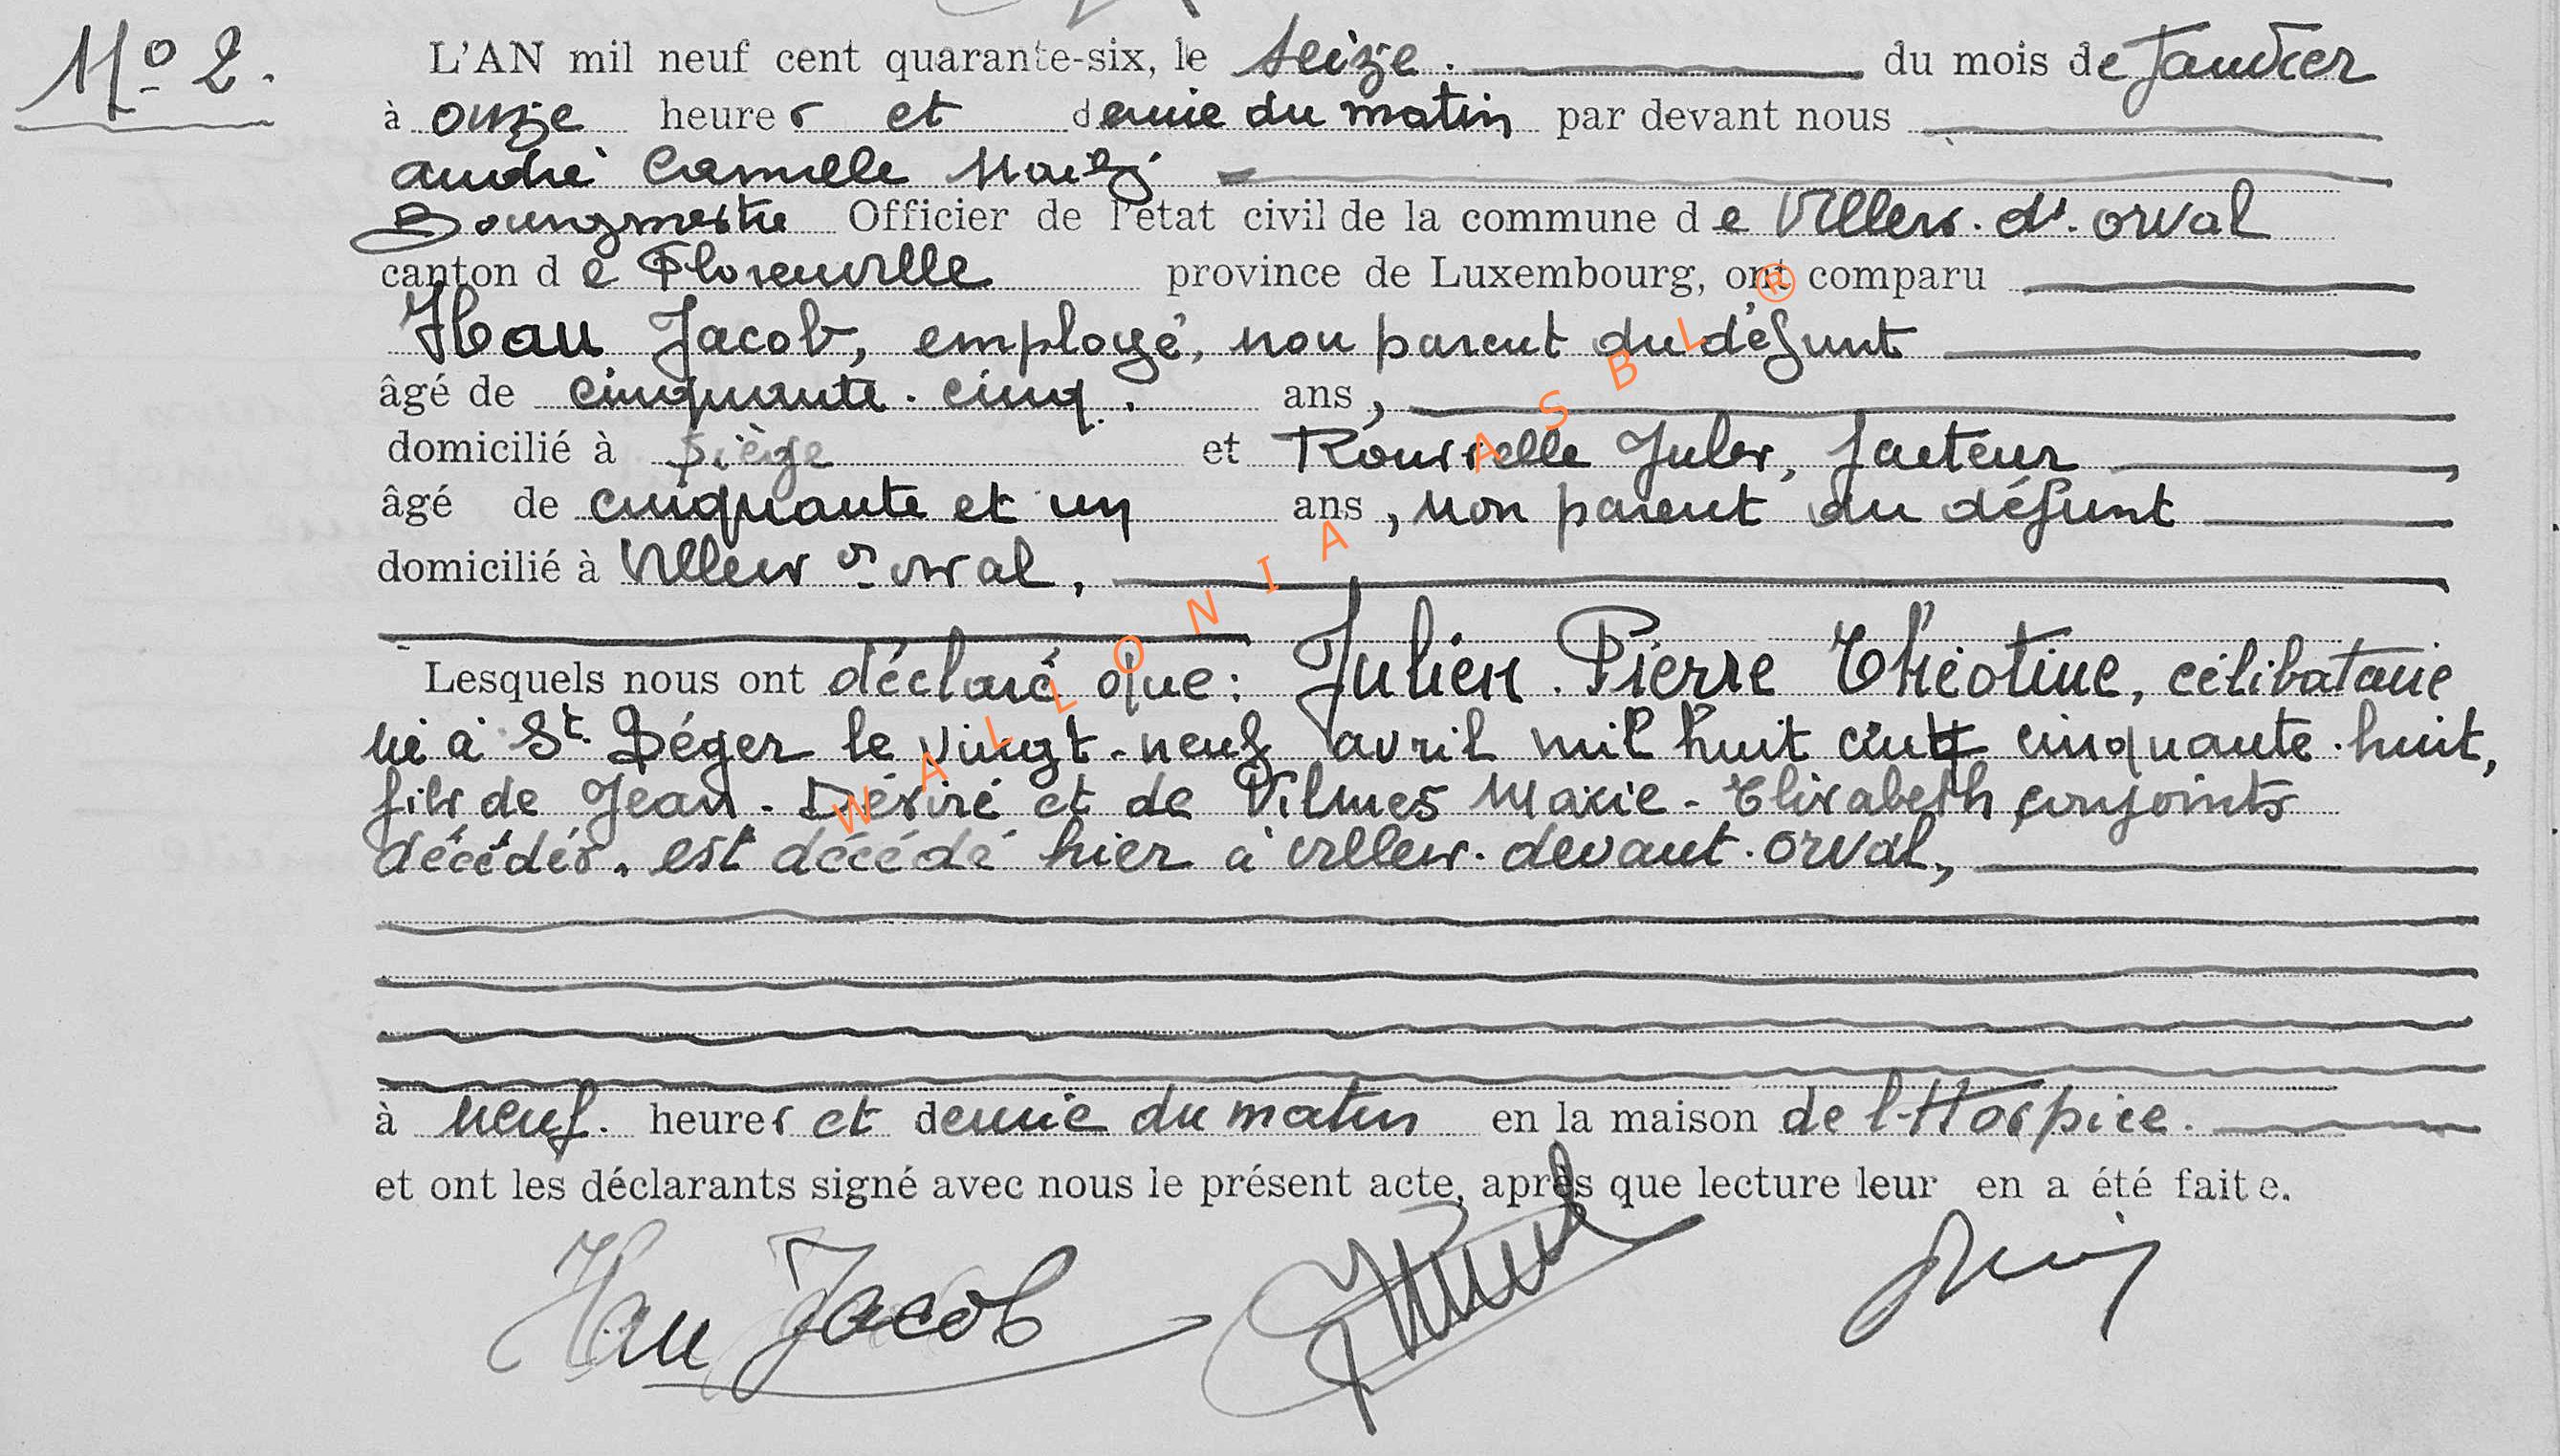 N° 2.
L'AN mil neuf cent quarante-six, le seize. du mois de Janvier
à onze heures et demie du matin par devant nous
André Camille
Bourgmestre Officier de l'état civil de la commune de Villers. dt. orval
canton de Florenville province de Luxembourg, ont comparu
Hau Jacob, employé, non parent du défunt
âgé de cinquante-cinq. ans,
domicilié à et Rousselle Jules, facteur,
âgé de cinquante et un ans, non parent du défunt
domicilié à Villers dt orval,
Lesquels nous ont déclaré que: Julien Pierre Théotine, célibataire
né à St. Léger le vingt-neuf avril mil huit cent cinquante-huit,
fils de Jean-Désiré et de Vilmes Marie-Elisabeth, conjoints
décédés, est décédé hier à Villers-devant-orval,
à neuf. heures et demie du matin en la maison de l'Hospice.
et ont les déclarants signé avec nous le présent acte, après que lecture leur en a été faite.
Hau Jacob
WALLONIA ASBL ®